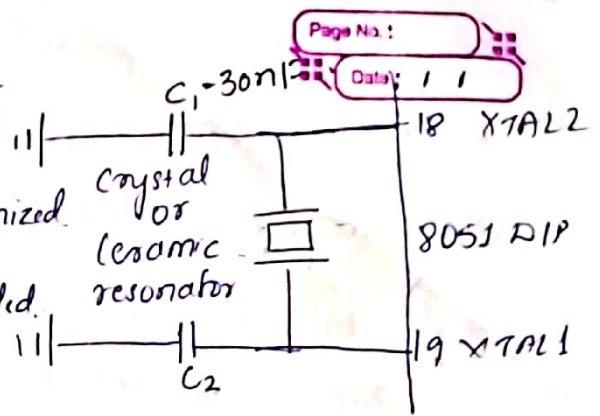 Page No.:
Date: / /
C₁-30nF
18 XTAL2
Crystal
or
Ceramic
resonator
nized.
8051 DIP
led.
19 XTAL1
C2